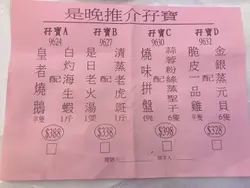 是晚推介孖寶
孖寶A
9624
皇者燒鵝 半隻
白灼海生蝦 1斤
$388
孖寶B
9627
是日老火湯 1窩
清蒸老虎斑 1斤
$338
孖寶C
9630
燒味拼盤 例
蒜蓉粉絲蒸聖子 6隻
$398
孖寶D
9632
脆皮一品雞 半隻
金銀蒸元貝 6隻
$328